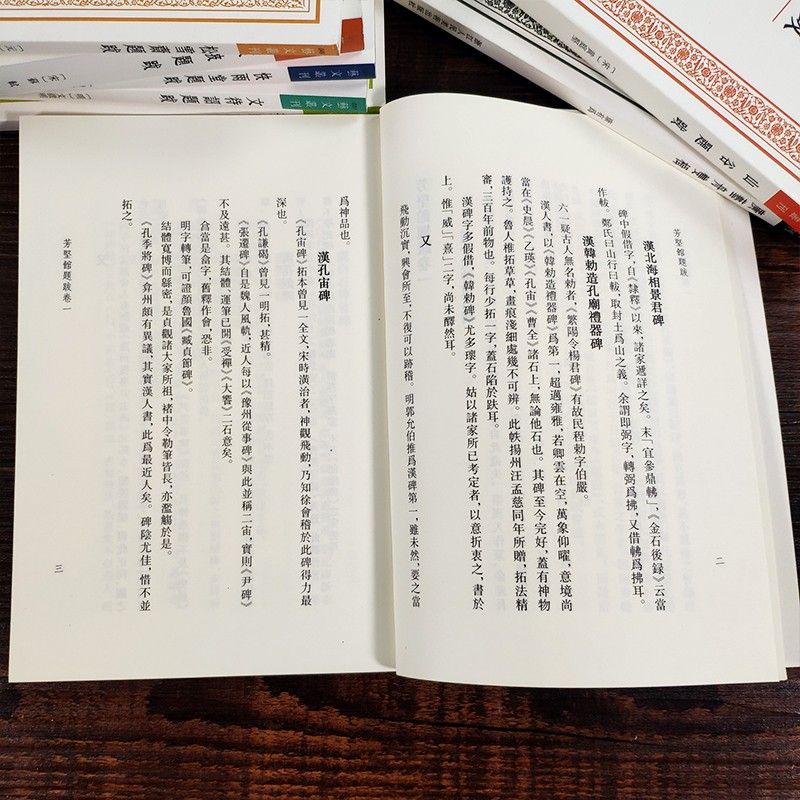 藝文叢刊
藝文叢刊
藝文叢刊
文待詔題跋
山谷題跋
浙江人民美術出版社
芳堅館題跋
二
漢北海相景君碑
碑中假借字，自《隸釋》以來，諸家遞詳之矣。末「宜參鼎鬴」，《金石後録》云當
作韍。鄭氏曰山行曰軷，取封土爲山之義。余謂即弼字，轉弼爲拂，又借鬴爲拂耳。
漢韓勅造孔廟禮器碑
六一疑古人無名勅者，《繁陽令楊君碑》有故民程勅字伯嚴。
漢人書，以《韓勅造禮器碑》爲第一，超邁雍雅，若卿雲在空，萬象仰曜，意境尚
當在《史晨》《乙瑛》《孔宙》《曹全》諸石上，無論他石也。其碑至今完好，蓋有神物
護持之。魯人椎拓草草，畫痕淺細處幾不可辨。此帙揚州汪孟慈同年所贈，拓法精
審，三百年前物也。每行少拓一字，蓋石陷於趺耳。
漢碑字多假借，《韓勅碑》尤多瓌字。姑以諸家所已考定者，以意折衷之，書於
上。惟「威」「熹」二字，尚未醳然耳。
又
飛動沉實，興會所至，不復可以跡稽。明郭允伯推爲漢碑第一，雖未然，要之當
爲神品也。
漢孔宙碑
《孔宙碑》拓本曾見一全文，宋時潢治者，神觀飛動，乃知徐會稽於此碑得力最
深也。
《孔謙碣》曾見一明拓，甚精。
《張遷碑》自是魏人風軌，近人每以《豫州從事碑》與此並稱二宙，實則《尹碑》
不及遠甚。其結體、運筆已開《受禪》《大饗》二石意矣。
會當是侖字，舊釋作會，恐非。
明字轉筆，可證顔魯國《臧貞節碑》。
結體寬博而緜密，是貞觀諸大家所祖，褚中令勒筆皆長，亦濫觴於是。
《孔季將碑》弇州頗有異議，其實漢人書，此爲最近人矣。碑陰尤佳，惜不並
拓之。
芳堅館題跋卷一
三